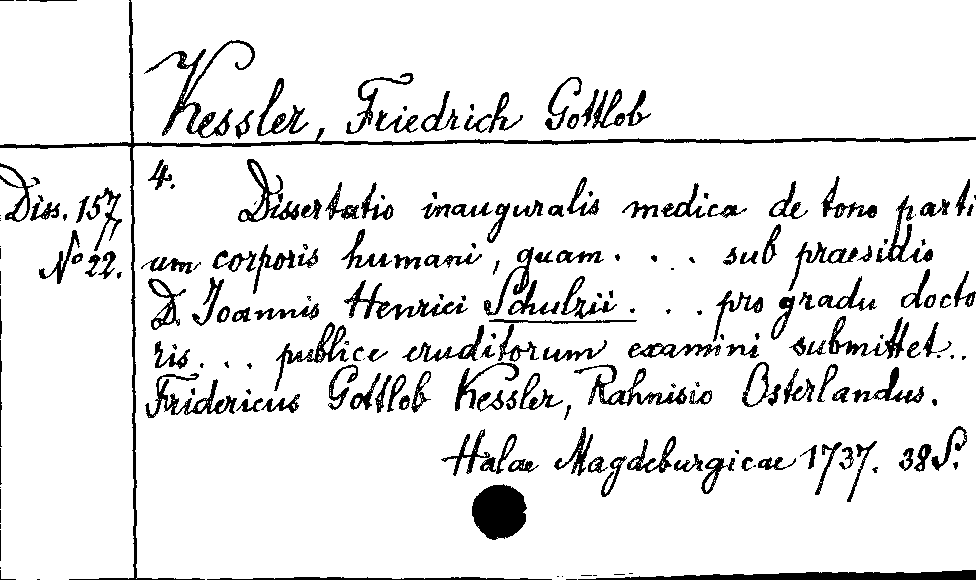 Kessler, Friedrich Gottlob
Diss. 157,
No 22.
4.
Dissertatio inauguralis medica de tono parti
um corporis humani, quam . . . sub praesidio
D. Joannis Henrici Schulzii . . . pro gradu docto
ris . . . publice eruditorum examini submittet . .
Fridericus Gottlob Kessler, Rahnisio Osterlandus.
Halae Magdeburgicae 1737. 38 S.